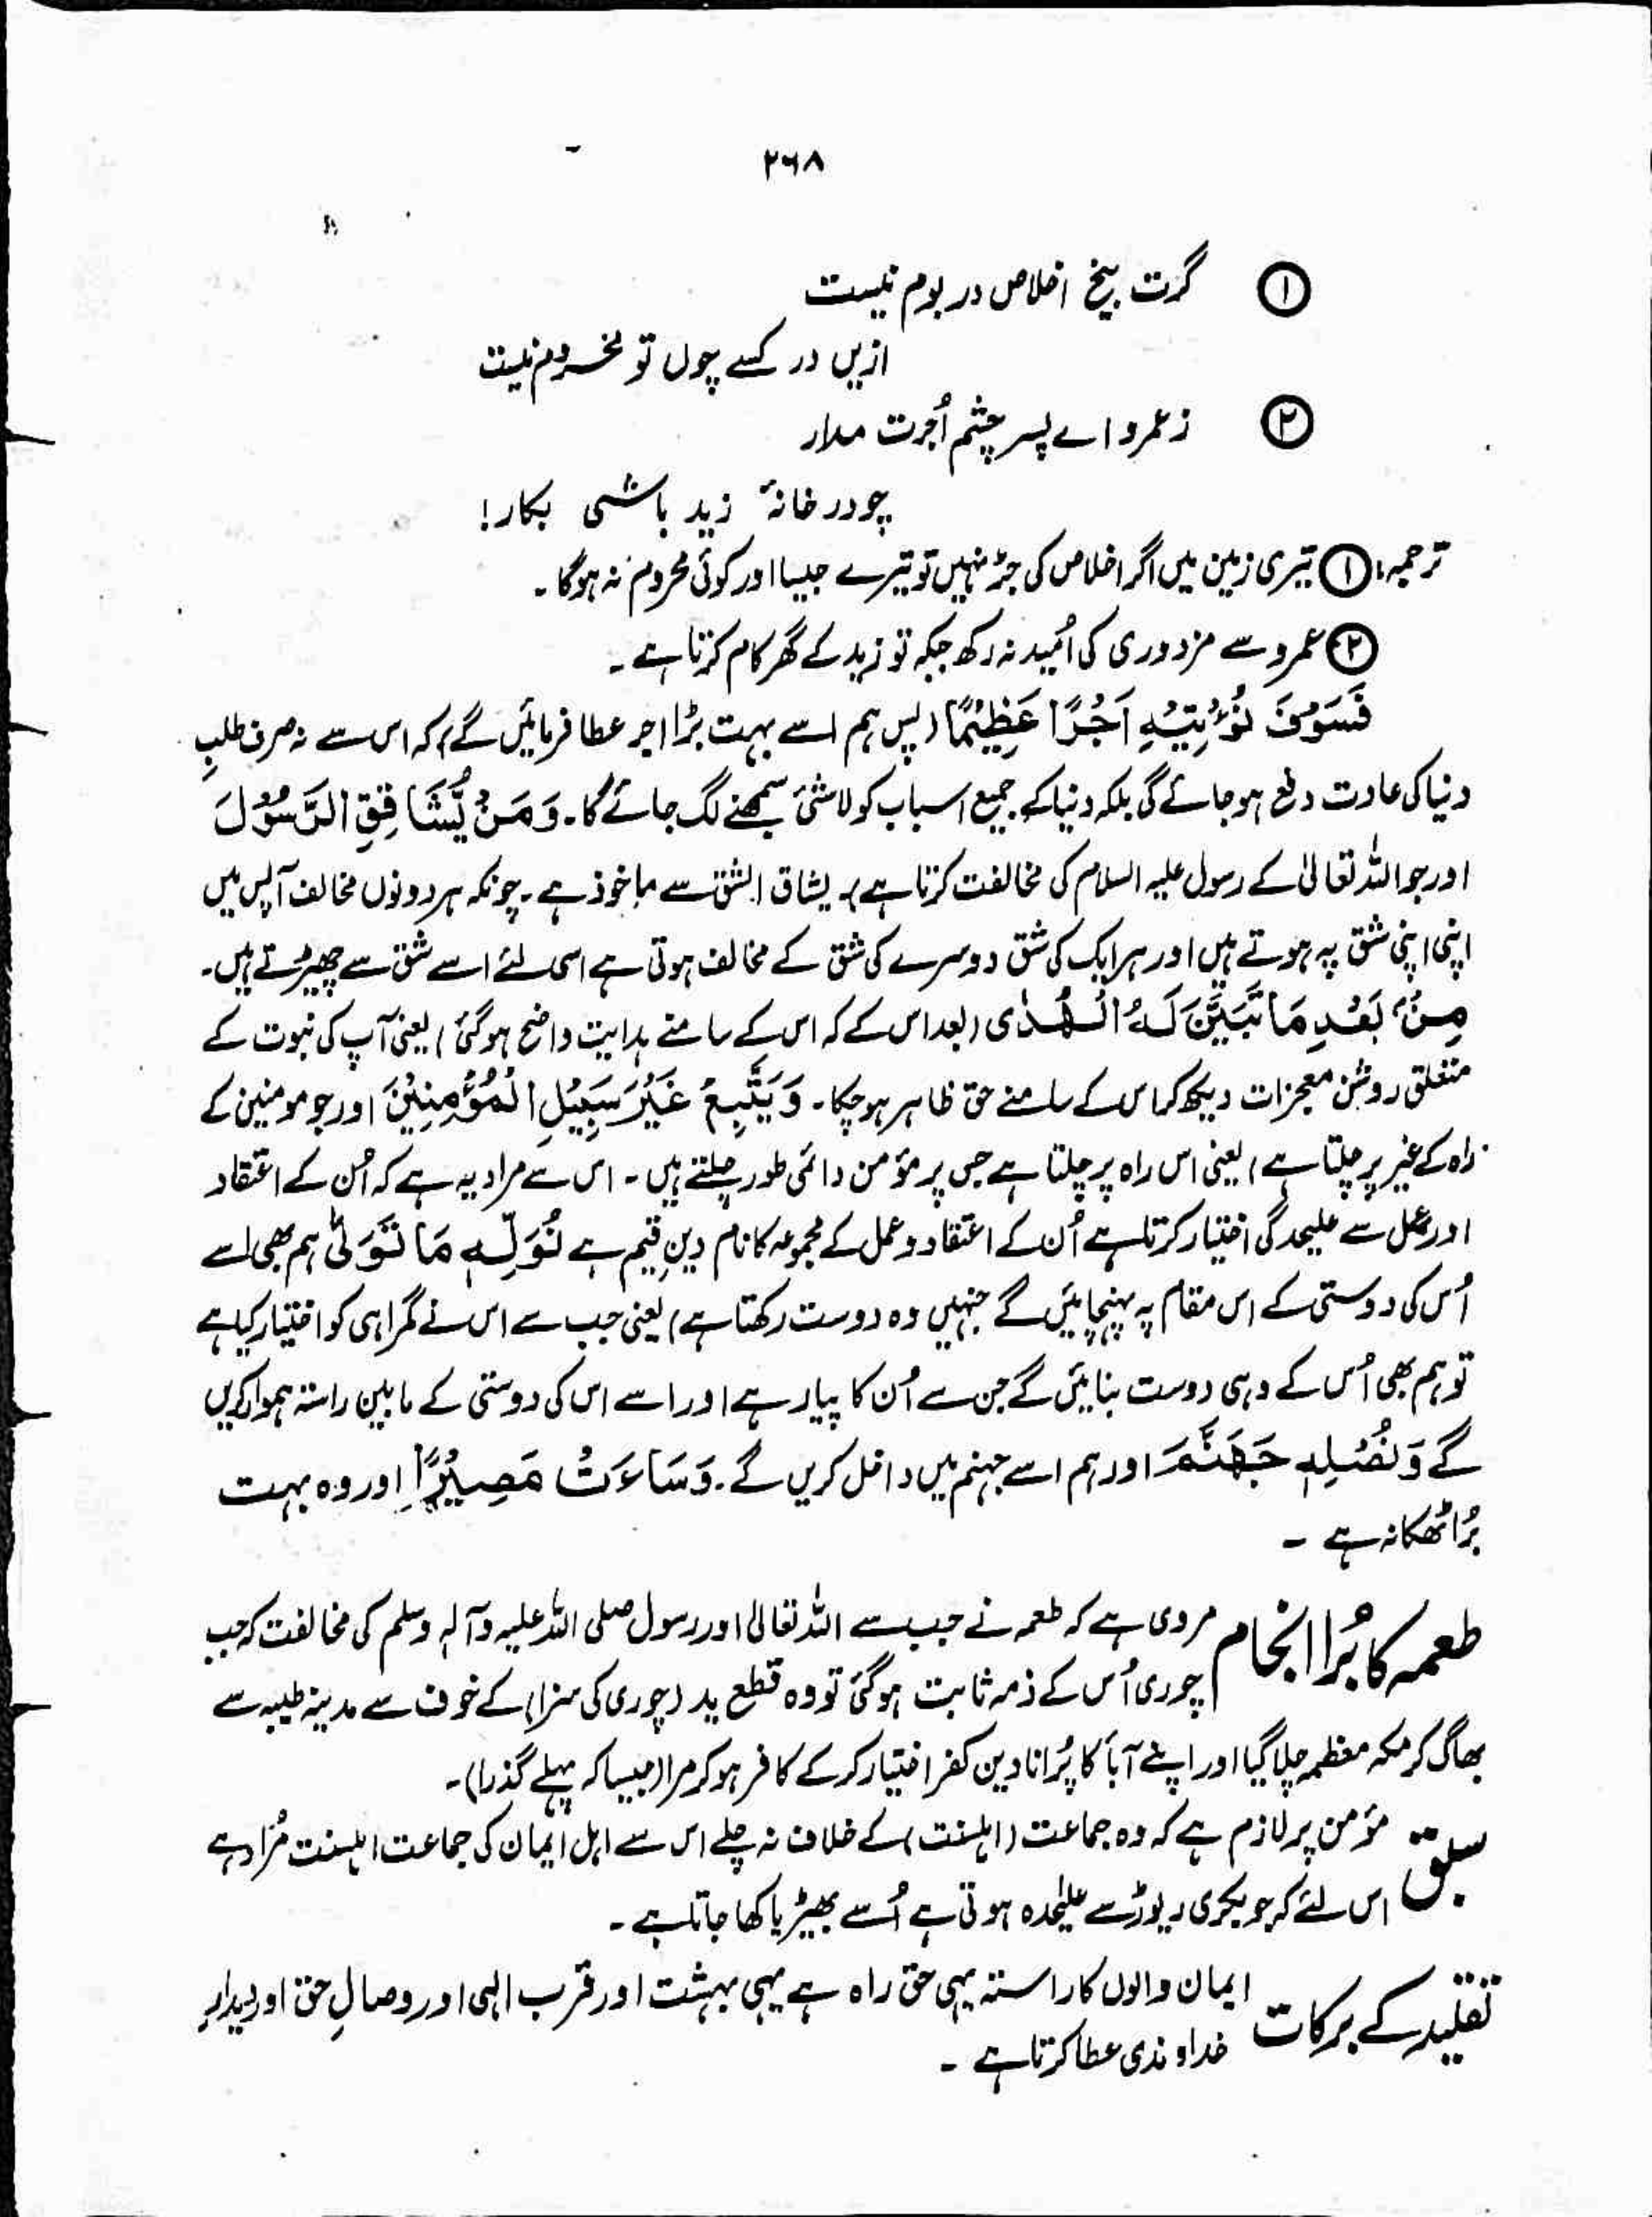 ۲۶۸
① گرت بیخ اخلاص در بوم نیست
ازیں در کسے چوں تو محروم نیست
② زعمرو اے پسر چشم اُجرت مدار
چو در خانۂ زید باشی بکار!
ترجمہ: ① تیری زمین میں اگر اخلاص کی جڑ نہیں تو تیرے جیسا اور کوئی محروم نہ ہوگا۔
② عمرو سے مزدوری کی اُمید نہ رکھ جبکہ تو زید کے گھر کام کرتا ہے۔
فَسَوْفَ نُؤْتِيْهِ اَجْرًا عَظِيْمًا (پس ہم اسے بہت بڑا اجر عطا فرمائیں گے) کہ اس سے نہ صرف طلبِ
دنیا کی عادت دفع ہو جائے گی بلکہ دنیا کے جمیع اسباب کو لاشئ سمجھنے لگ جائے گا۔ وَمَنْ يُّشَاقِقِ الرَّسُوْلَ
اور جو اللہ تعالیٰ کے رسول علیہ السلام کی مخالفت کرتا ہے) یشاق الشق سے ماخوذ ہے۔ چونکہ ہر دونوں مخالف آپس میں
اپنی اپنی شق پہ ہوتے ہیں اور ہر ایک کی شق دوسرے کی شق کے مخالف ہوتی ہے اسی لئے اسے شق سے چھیڑتے ہیں۔
مِنْۢ بَعْدِ مَا تَبَيَّنَ لَهُ الْهُدٰى (بعد اس کے کہ اس کے سامنے ہدایت واضح ہوگئی) یعنی آپ کی نبوت کے
متعلق روشن معجزات دیکھ کر اس کے سامنے حق ظاہر ہو چکا۔ وَيَتَّبِعْ غَيْرَ سَبِيْلِ الْمُؤْمِنِيْنَ اور جو مومنین کے
راہ کے غیر پر چلتا ہے) یعنی اس راہ پر چلتا ہے جس پر مؤمن دائمی طور چلتے ہیں۔ اس سے مراد یہ ہے کہ اُن کے اعتقاد
اور عمل سے علیحدگی اختیار کرتا ہے اُن کے اعتقاد و عمل کے مجموعہ کا نام دینِ قیم ہے نُوَلِّهٖ مَا تَوَلّٰى ہم بھی اسے
اُس کی دوستی کے اس مقام پہ پہنچائیں گے جنہیں وہ دوست رکھتا ہے) یعنی جب سے اس نے گمراہی کو اختیار کیا ہے
تو ہم بھی اُس کے وہی دوست بنائیں گے جن سے اُن کا پیار ہے اور اسے اس کی دوستی کے مابین راستہ ہموار کریں
گے وَنُصْلِهٖ جَهَنَّمَ اور ہم اسے جہنم میں داخل کریں گے۔ وَسَاءَتْ مَصِيْرًا اور وہ بہت
بُرا ٹھکانہ ہے ۔
طعمہ کا بُرا انجام مروی ہے کہ طعمہ نے جب سے اللہ تعالیٰ اور رسول صلی اللہ علیہ وآلہ وسلم کی مخالفت کہ جب
چوری اُس کے ذمہ ثابت ہوگئی تو وہ قطع ید (چوری کی سزا) کے خوف سے مدینہ طیبہ سے
بھاگ کر مکہ معظمہ چلا گیا اور اپنے آبأ کا پُرانا دین کفر اختیار کر کے کافر ہو کر مرا (جیسا کہ پہلے گذرا)۔
سبق مؤمن پر لازم ہے کہ وہ جماعت (اہلسنت) کے خلاف نہ چلے اس سے اہل ایمان کی جماعت اہلسنت مُراد ہے
اس لئے کہ جو بکری ریوڑ سے علیٰحدہ ہوتی ہے اُسے بھیڑیا کھا جاتا ہے۔
تقلید کے برکات ایمان والوں کا راستہ یہی حق راہ ہے یہی بہشت اور قرب الٰہی اور وصالِ حق اور دیدارِ
خداوندی عطا کرتا ہے ۔